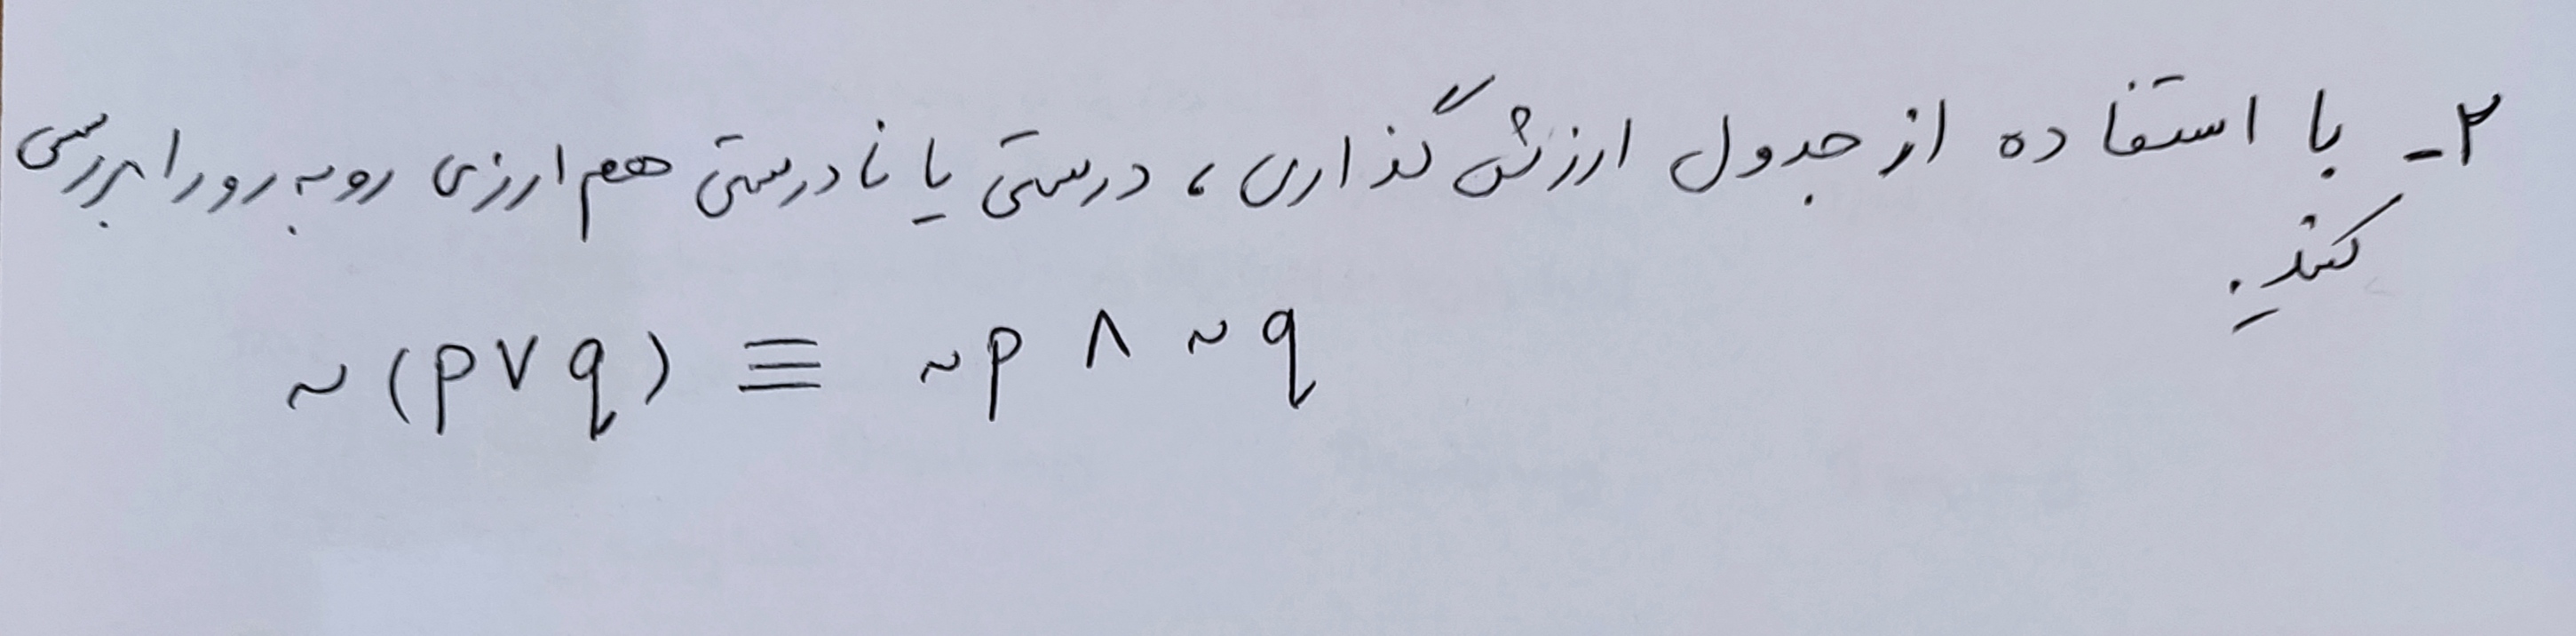 ۲- با استفاده از جدول ارزش گذاری، درستی یا نادرستی هم ارزی روبه رو را بررسی
کنید.
~ (p ∨ q) ≡ ~p ∧ ~q